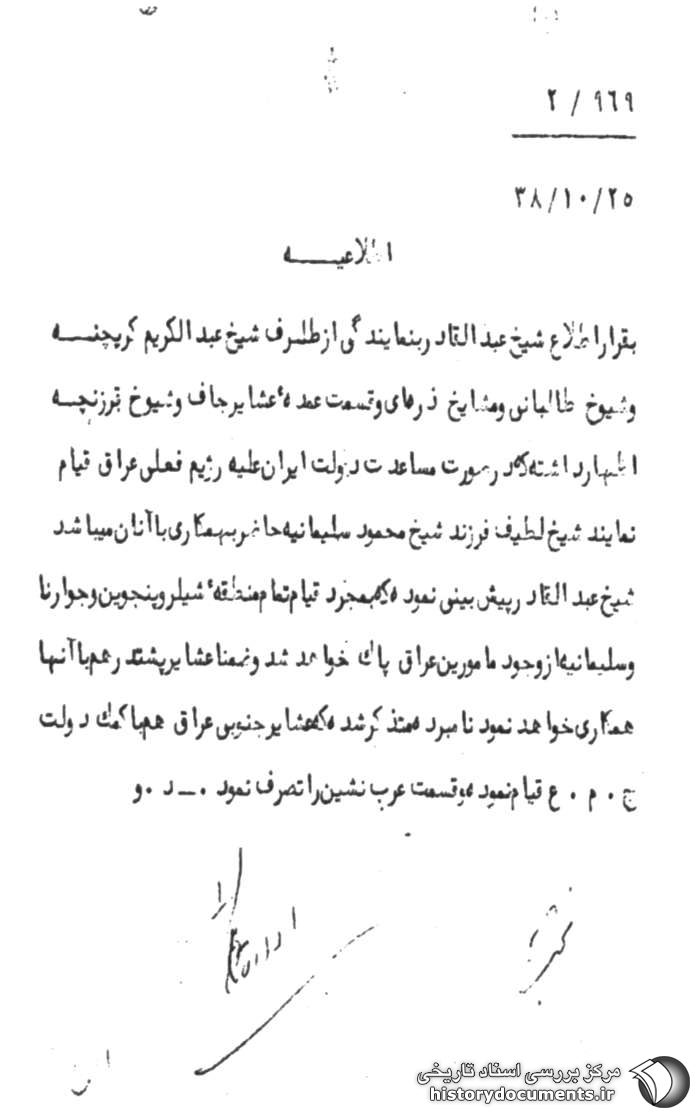 ۲ / ۹۶۹
۳۸/۱۰/۲۵
اطلاعیـــه
بقرار اطلاع شیخ عبدالقادر بنمایندگی از طـرف شیخ عبدالکریم کرپچنـــه
و شیوخ طالبانی و مشایخ ذرهای و قسمت عمده عشایر جاف و شیوخ قرزنچـه
اظهار داشته که در صورت مساعدت دولت ایران علیه رژیم فعلی عراق قیام
نمایند شیخ لطیف فرزند شیخ محمود سلیمانیه حاضر بهمکاری با آنان میباشد
شیخ عبدالقادر پیش بینی نموده که بمجرد قیام تمام منطقه شیلر و پنجوین و جوارنا
و سلیمانیه از وجود مامورین عراق پاک خواهد شد و ضمنا عشایر پشتدر هم با آنها
همکاری خواهد نمود نامبرده متذکر شده که عشایر جنوبی عراق هم با کمک دولت
ج . م . ع قیام نموده و قسمت عرب نشین را تصرف نمود . ــ د . و
مرکز بررسی اسناد تاریخی
historydocuments.ir